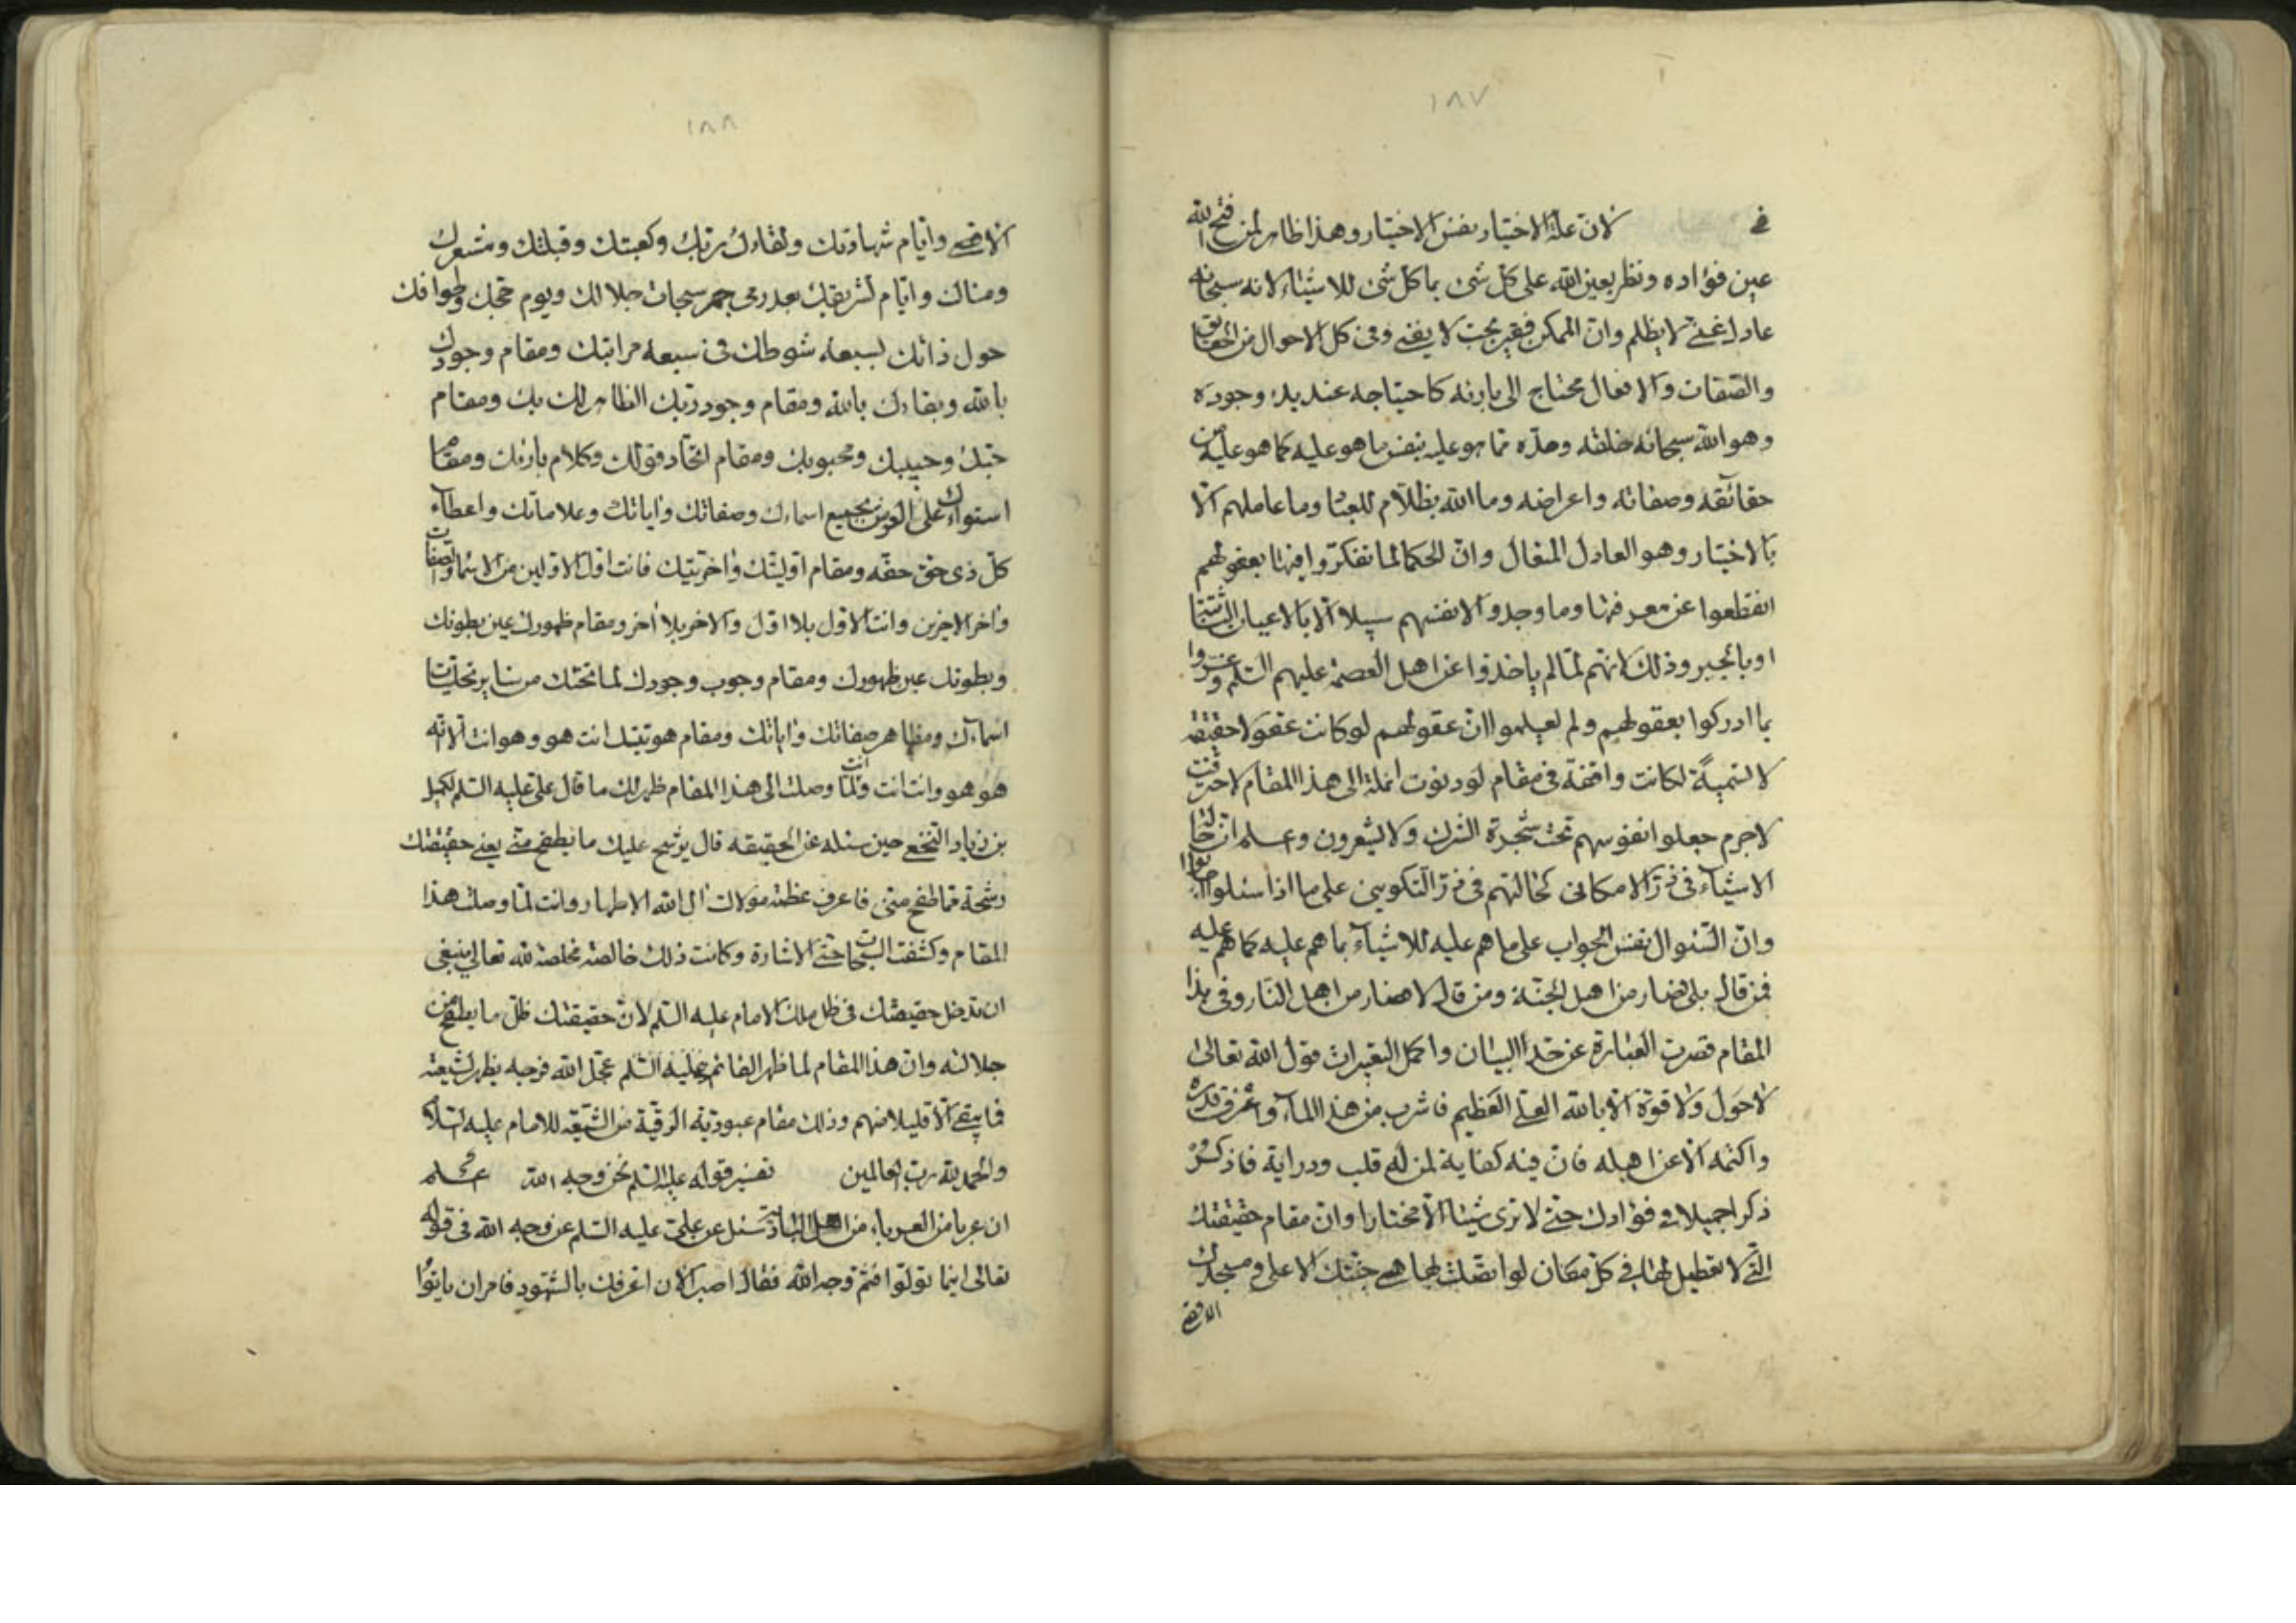 ١٨٧
في لان علة الاختيار نفس الاختيار وهذا ظاهر لمن فتح الله
عين فؤاده ونظر بعين الله على كل شئ بما كل شئ للاشياء لانه سبحانه
عادل غني لا يظلم وان الممكن فقير بحت لا يغني وفي كل الاحوال من الحقايق
والصفات والافعال محتاج الى بارئه كاحتياجه عند بدء وجوده
وهو الله سبحانه خلقه وحده مما هو عليه بنفس ما هو عليه كما هو عليه من
حقائقه وصفاته واعراضه وما الله بظلام للعباد وما عاملهم الا
بالاختيار وهو العادل المتعال وان الحكما لما تفكروا فيها بعقولهم
انقطعوا عن معرفتها وما وجدوا لانفسهم سبيلا الا بالاعيان الثابتة
او بالجبر وذلك لانهم لما لم ياخذوا عن اهل العصمة عليهم السلم وغروا
بما ادركوا بعقولهم ولم يعلموا ان عقولهم لو كانت عقولا حقيقة
لا تسمية لكانت واقفة في مقام لو دنوت انملة الى هذا المقام لاحترقت
لاجرم جعلوا انفوسهم تحت شجرة الشرك ولا يشعرون وعلم ان حالة
الاشياء في ذر الامكاني كحالتهم في ذر التكويني على ما اذا سئلوا اجابوا
وان السئوال نفس الجواب على ما هم عليه للاشياء بما هم عليه كما هم عليه
فمن قال بلى فصار من اهل الجنة ومن قال لا فصار من اهل النار وفي هذا
المقام قصرت العبارة عن حد البيان واكمل التعبيرات قول الله تعالى
لا حول ولا قوة الا بالله العلي العظيم فاشرب من هذا الماء واعرف قدره
واكتمه الا عن اهله فان فيه كفاية لمن له قلب ودراية فاذكر
ذكرا جميلا في فؤادك حتى لا ترى شيئا الا مختارا وان مقام حقيقتك
التي لا تعطيل لها في كل مكان لو اتصلت لها هي جنتك الاعلى ومسجدك
الاقصى
١٨٨
الاقصى وايام شهادتك ولقاءك ربك وكعبتك وقبلتك ومشعرك
ومناك وايام تشريقك بعد رمي جمر سبحات جلالك ويوم حجك وطوافك
حول ذاتك لسبعة شوطك في سبعة مراتبك ومقام وجودك
بالله وبقاءك بالله ومقام وجود ربك الظاهر لك بك ومقام
حبك وحبيبك ومحبوبك ومقام اتحاد قولك وكلام بارئك ومقام
استواءك على العرش بجميع اسماءك وصفاتك واياتك وعلاماتك واعطاء
كل ذي حق حقه ومقام اوليتك واخريتك فانت اول الاولين من الاسماء والصفات
واخر الاخرين وانت الاول بلا اول والاخر بلا أخر ومقام ظهورك عين بطونك
وبطونك عين ظهورك ومقام وجوب وجودك لما تحتك من ساير تجليات
اسماءك ومظاهر صفاتك واياتك ومقام هويتك انت هو وهو انت الا انه
هو هو وانت انت ولما انت وصلت الى هذا المقام ظهر لك ما قال علي عليه السلم لكميل
بن زياد النخعي حين سئله عن الحقيقه قال يرشح عليك ما يطفح مني يعني حقيقتك
رشحة مما طفح مني فاعرف عظمة مولاك ال الله الاطهار وانت لما وصلت هذا
المقام وكشفت السبحات حتى الاشارة وكانت ذلك خالصة مخلصة لله تعالى ينبغي
ان تدخل حقيقتك في ظل ملك الامام عليه السلم لان حقيقتك ظل ما يطفح من
جلالته وان هذا المقام لما ظهر القائم عليه السلم عجل الله فرجه يظهر لشيعته
فما يبقى الا قليلا منهم وذلك مقام عبودية الرقية من الشيعة للامام عليه السلام
والحمد لله رب العالمين تفسير قوله عليه السلم نحن وجه الله
ان عربا من العرباء من اهل البادية سئل عن علي عليه السلم عن وجه الله في قوله
تعالى اينما تولوا فثم وجه الله فقال اصبر الان اعرفك بالشهود فامر ان ياتوا